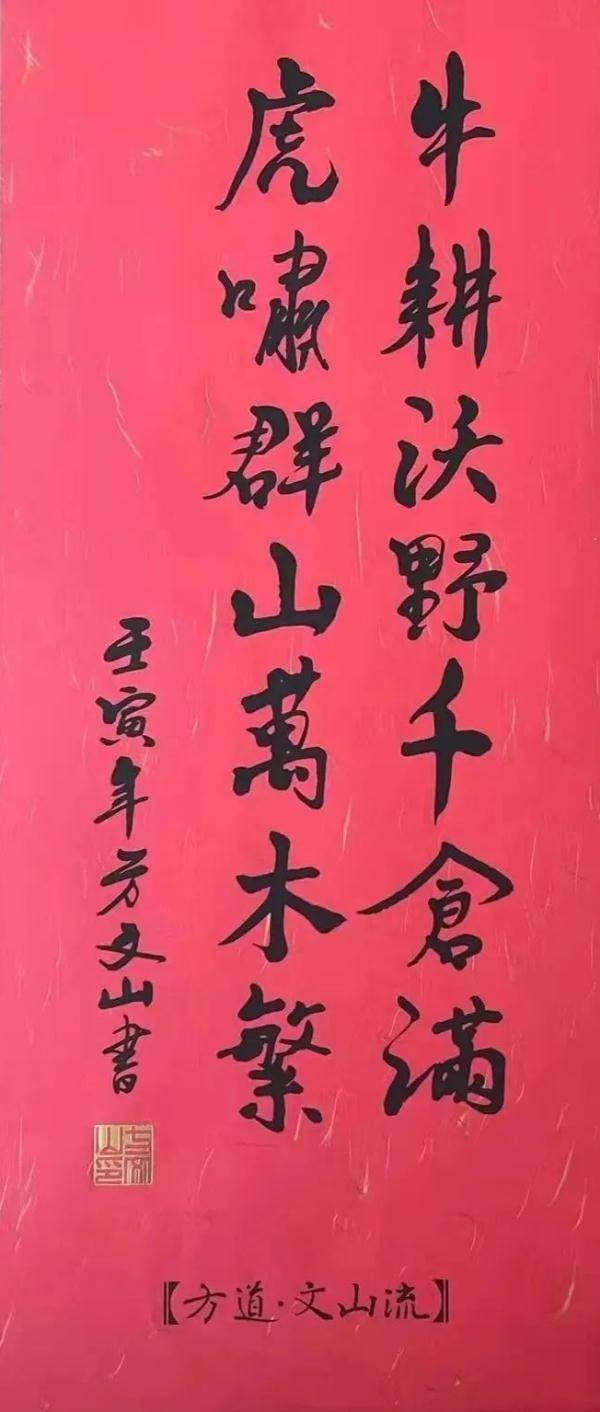 牛耕沃野千倉滿
虎嘯群山萬木繁
壬寅年方文山書
方文山印
【方道·文山流】